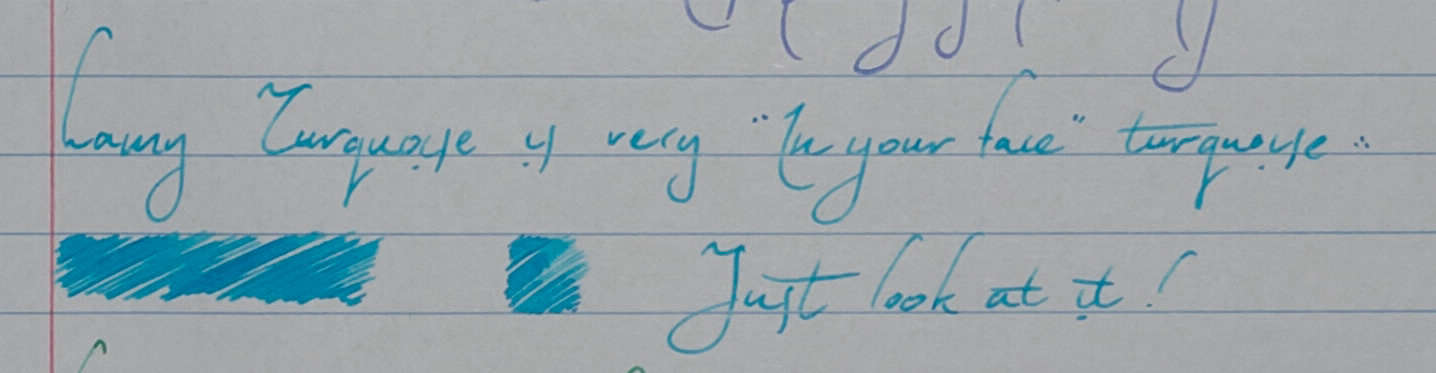 Lamy Turquoise is very "In your face" turquoise :
Just look at it!